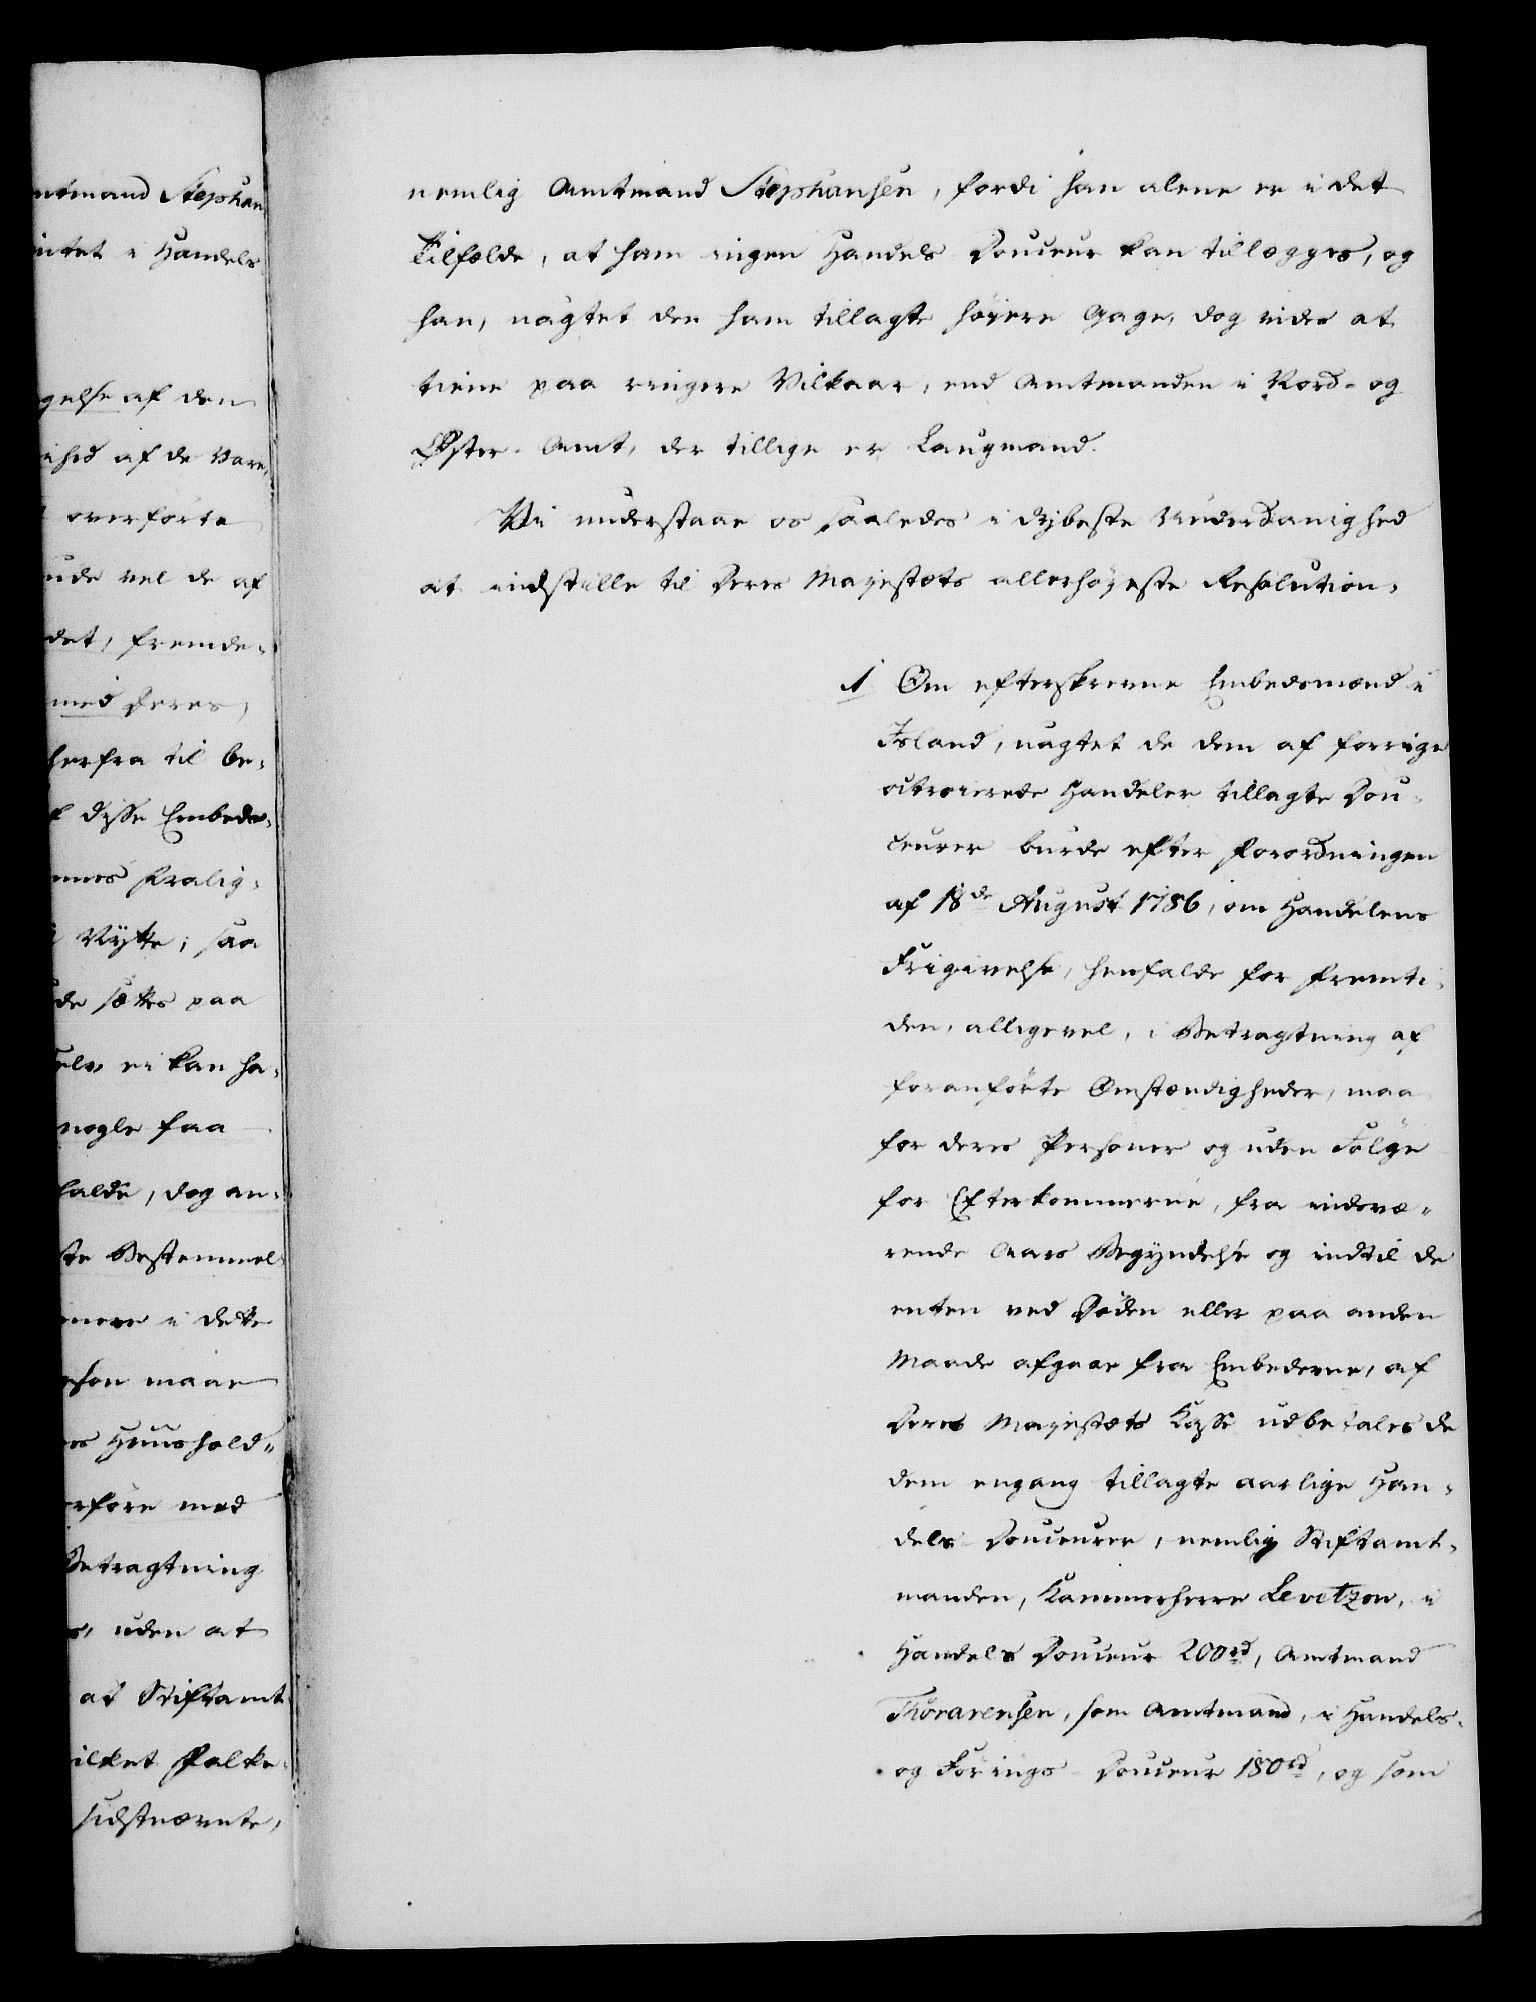 ntmand Stephan
intet i Handels
gelse af den
ihed af de Vare,
overførte
nde vel de af
det, fremde-
med deres,
herfra til be-
disse Embeds-
nes Fralig-
Nytte; saa
de sættes paa
selv ei kan ha-
nogle faa
falde, dog an-
ste Bestemmel
mere i dette
rson maae
es Huushold-
rføre med
Betragtning
s, uden at
at Stiftamt
ilket Falke-
sidstnævnte,
nemlig Amtmand Stephansen, fordi han alene er i det
Tilfælde, at ham ingen Handels Douceur kan tillægges, og
han, uagtet den ham tillagte høyere Gage, dog vides at
tiene paa ringere Vilkaar, end Amtmanden i Nord- og
Øster-Amt, der tillige er Laugmand.
Vi understaae os saaledes i dybeste Underdanighed
at indstille til Deres Majestæts allerhøyeste Resolution,
1 Om efterskrevne Embedsmænd i
Island, uagtet de dem af forrige
octroierede Handeler tillagte Dou-
ceurer burde efter Forordningen
af 18de August 1786, om Handelens
Frigivelse, henfalde for Fremti-
den, alligevel, i Betragtning af
foranførte Omstændigheder, maa
for deres Personer og uden Følge
for Efterkommerne, fra indevæ-
rende Aars Begyndelse og indtil de
enten ved Døden eller paa anden
Maade afgaae fra Embederne, af
Deres Majestæts Kasse udbetales de
dem engang tillagte aarlige Han-
dels Douceurer, nemlig Stiftamt-
manden, Kammerherre Levetzon, i
Handels Douceur 200rd, Amtmand
Thorarensen, som Amtmand, i Handels-
og Førings Douceur 180rd, og som